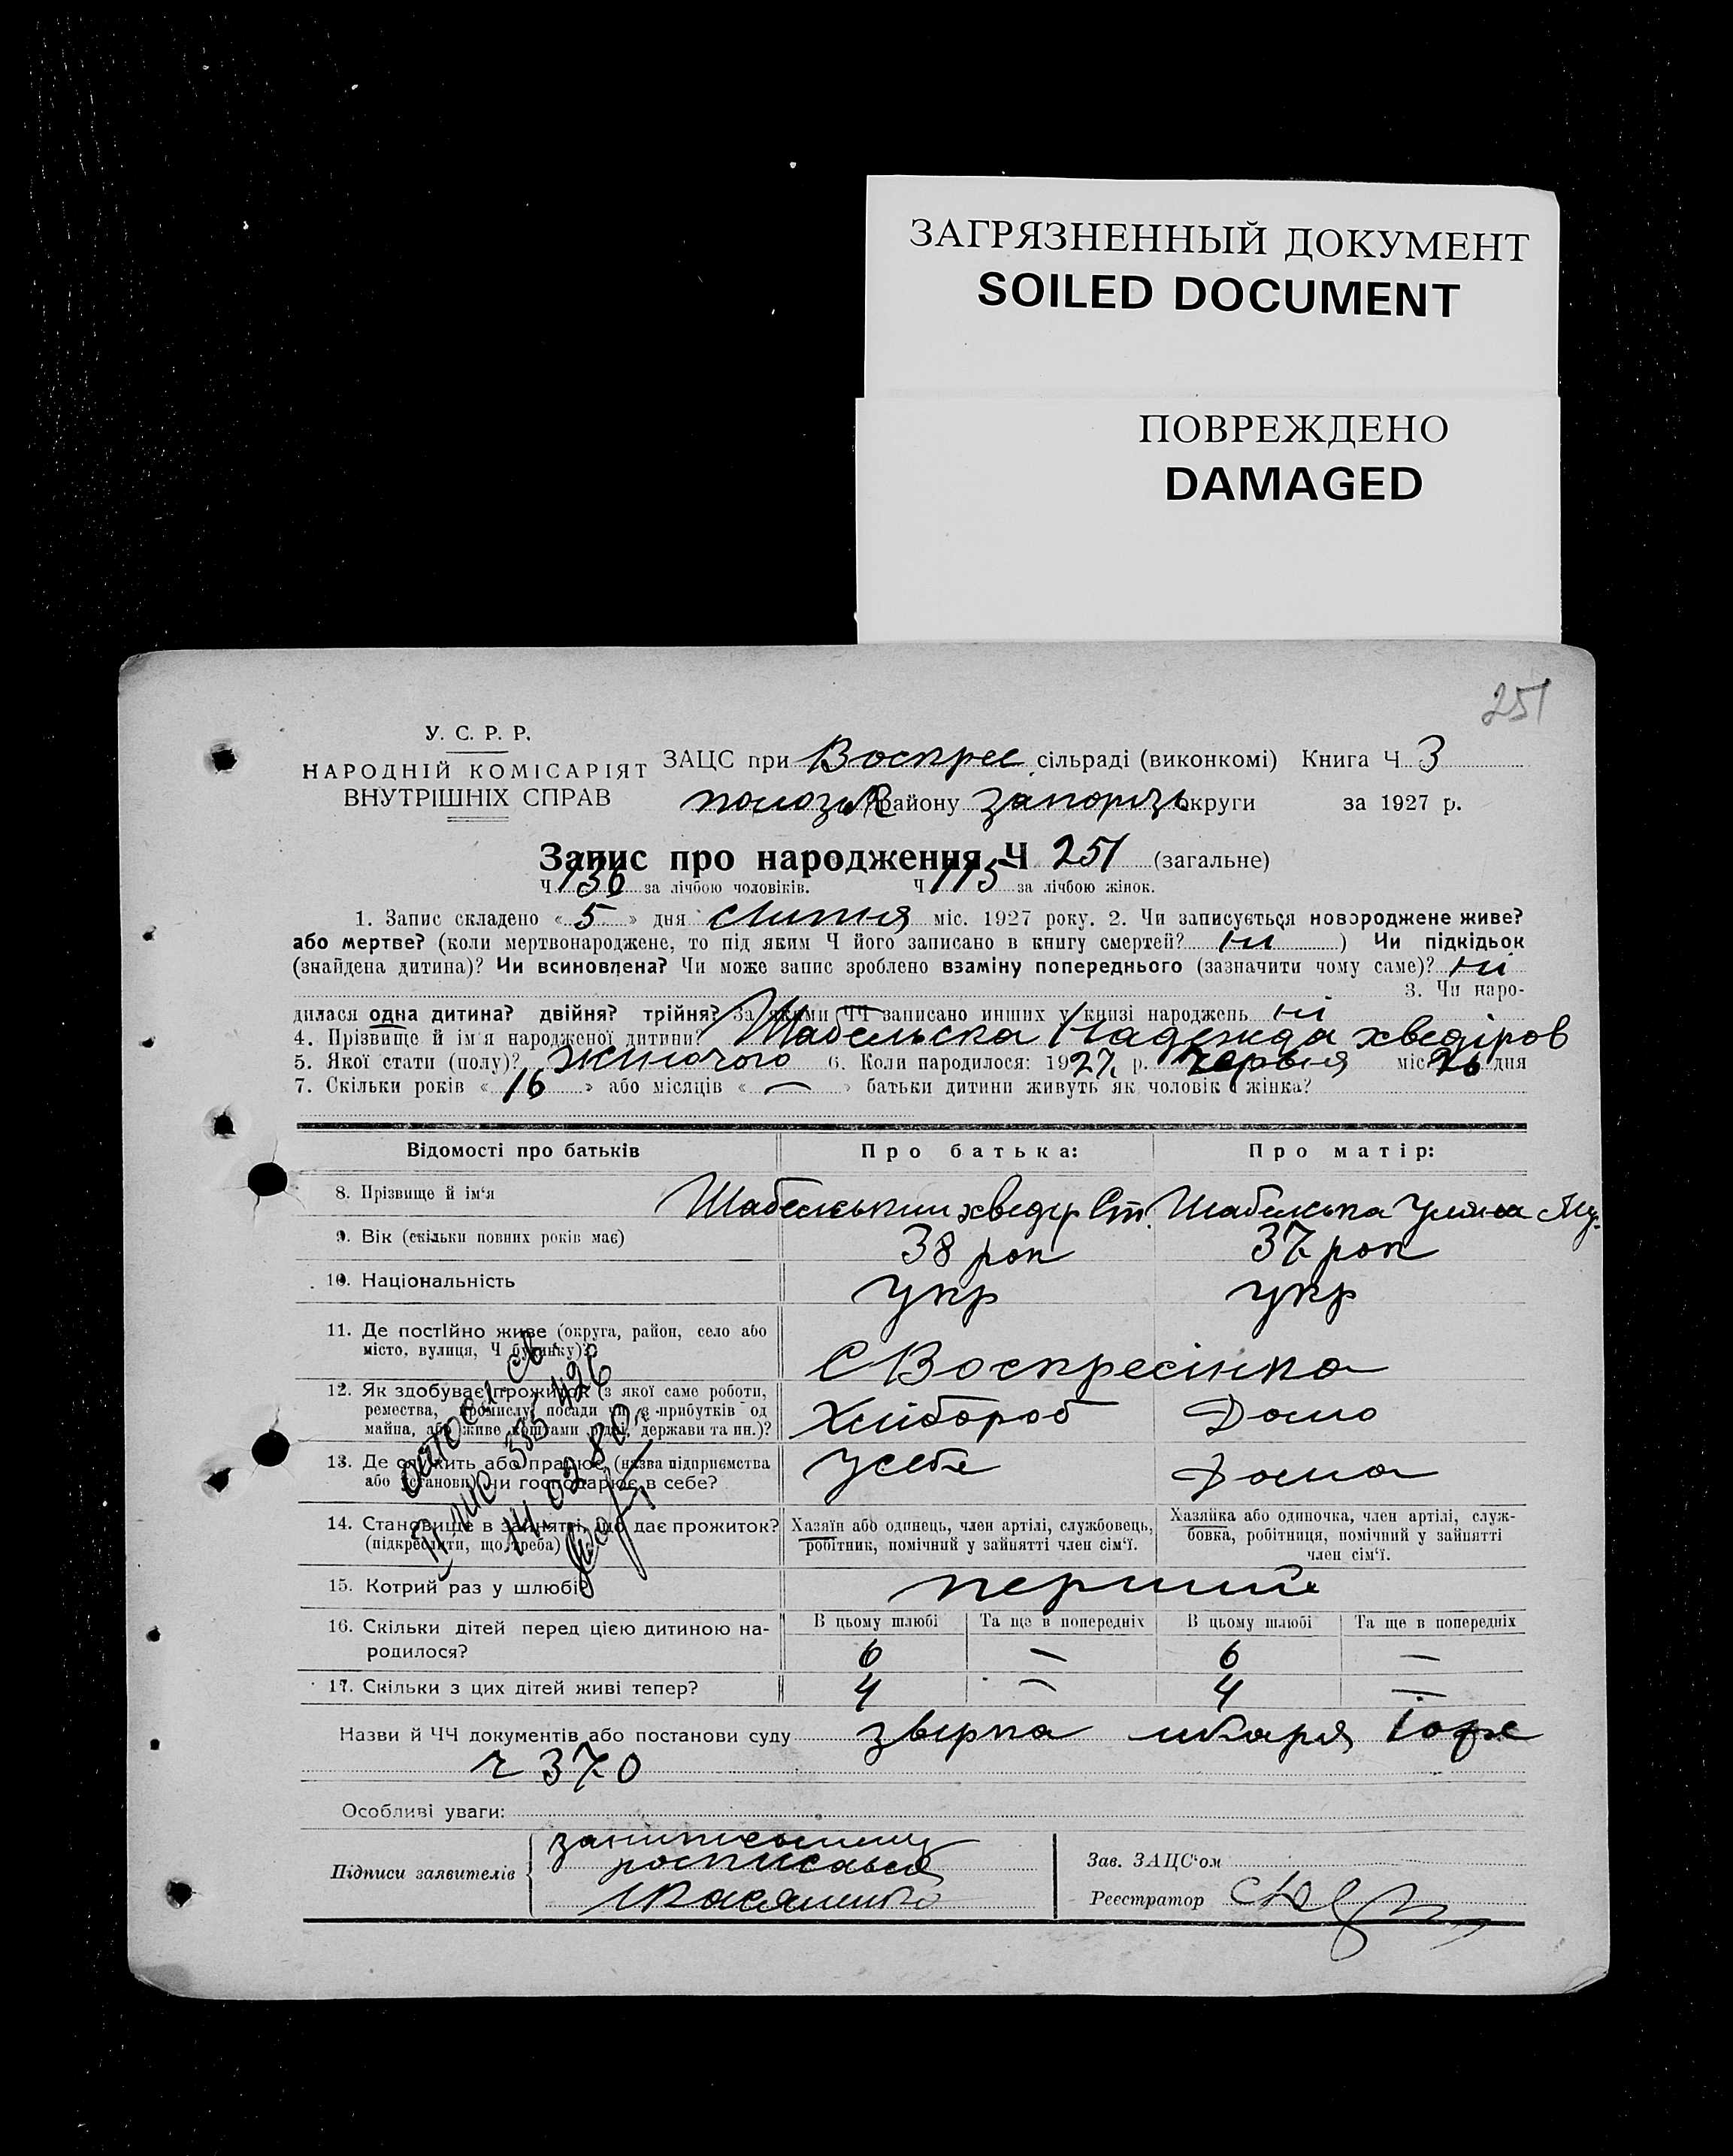 ЗАГРЯЗНЕННЫЙ ДОКУМЕНТ
SOILED DOCUMENT
ПОВРЕЖДЕНО
DAMAGED
251
У. С. Р. Р.
НАРОДНІЙ КОМІСАРІЯТ
ВНУТРІШНІХ СПРАВ
ЗАЦС при Воскрес сільраді (виконкомі) Книга Ч 3
району Запоріз округи за 1927 р.
Запис про народження Ч 251 (загальне)
Ч 136 за лічбою чоловіків. Ч 115 за лічбою жінок.
1. Запис складено « 5 » дня Липня міс. 1927 року. 2. Чи записується новороджене живе?
або мертве? (коли мертвонароджене, то під яким Ч його записано в книгу смертей? ні ) Чи підкідьок
(знайдена дитина)? Чи всиновлена? Чи може запис зроблено взаміну попереднього (зазначити чому саме)? ні
3. Чи наро-
дилася одна дитина? двійня? трійня? За якими ЧЧ записано инших у книзі народжень ні
4. Прізвище й ім'я народженої дитини? Шабельска Надежда хведіров
5. Якої стати (полу)? жиночого 6. Коли народилося: 1927 р. червня міс. 26 дня
7. Скільки років « 16 » або місяців « — » батьки дитини живуть як чоловік і жінка?
Відомості про батьків Про батька: Про матір:
8. Прізвище й ім'я Шабельський хведір Ст. Шабельска Уляна
9. Вік (скільки повних років має) 38 рок 37 рок
10. Національність укр укр
11. Де постійно живе (округа, район, село або
місто, вулиця, Ч будинку)? С Воскресінка
12. Як здобуває прожиток (з якої саме роботи,
ремества, промислу, посади чи з прибутків од
майна, або живе коштами рідні, держави та ин.)? Хлібороб Дома
13. Де служить або працює (назва підприємства
або установи) чи господарює в себе? У себе Дома
14. Становище в зайнятті, що дає прожиток?
(підкреслити, що треба)
Хазяїн або одинець, член артілі, службовець,
робітник, помічний у зайнятті член сім'ї.
Хазяйка або одиночка, член артілі, служ-
бовка, робітниця, помічний у зайнятті
член сім'ї.
15. Котрий раз у шлюбі? перший
16. Скільки дітей перед цією дитиною на-
родилося?
В цьому шлюбі Та ще в попередніх В цьому шлюбі Та ще в попередніх
6 — 6 —
17. Скільки з цих дітей живі тепер? 4 — 4 —
14.02.80
Назви й ЧЧ документів або постанови суду звірка лікаря
ч 370
Особливі уваги:
Підписи заявителів
росписався
Зав. ЗАЦС'ом
Реєстратор